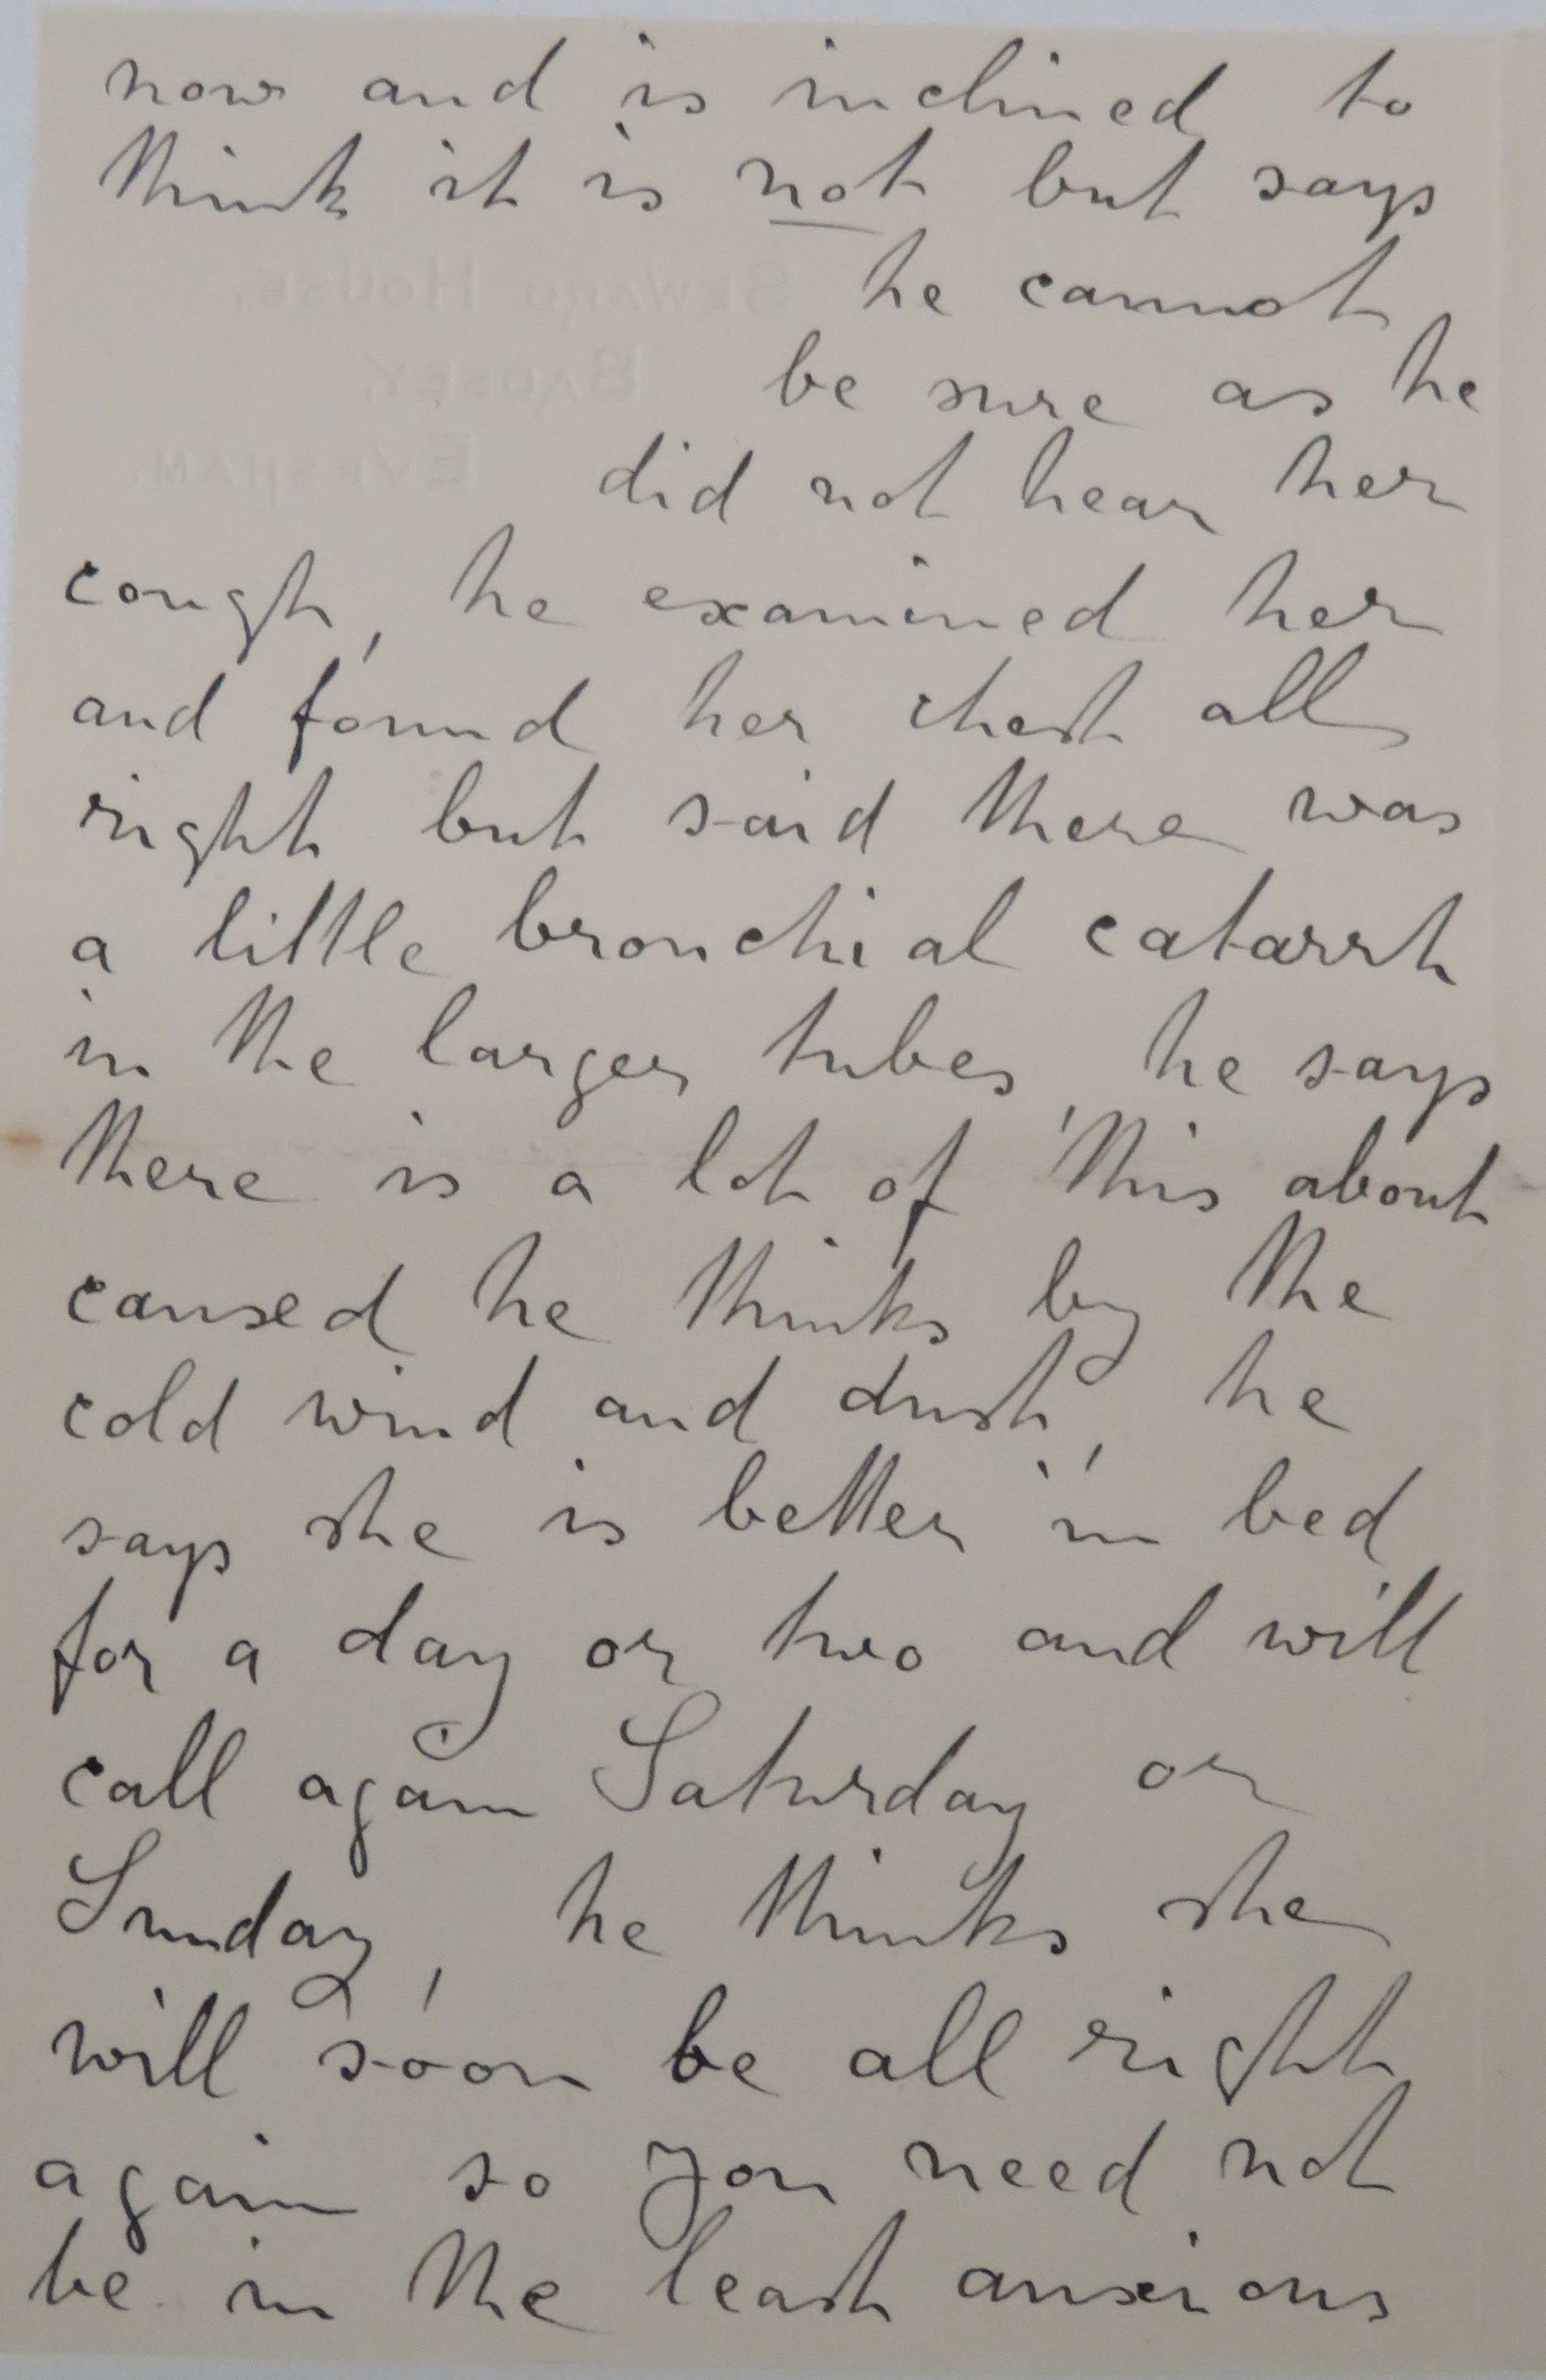 now and is inclined to
think it is not but says
he cannot
be sure as he
did not hear her
cough, he examined her
and found her chest all
right but said there was
a little bronchial catarrh
in the larger tubes, he says
there is a lot of this about
caused he thinks by the
cold wind and dust, he
says she is better in bed
for a day or two and will
call again Saturday or
Sunday, he thinks she
will soon be all right
again so you need not
be in the least anxious
SEWARD HOUSE,
BADSEY,
EVESHAM.